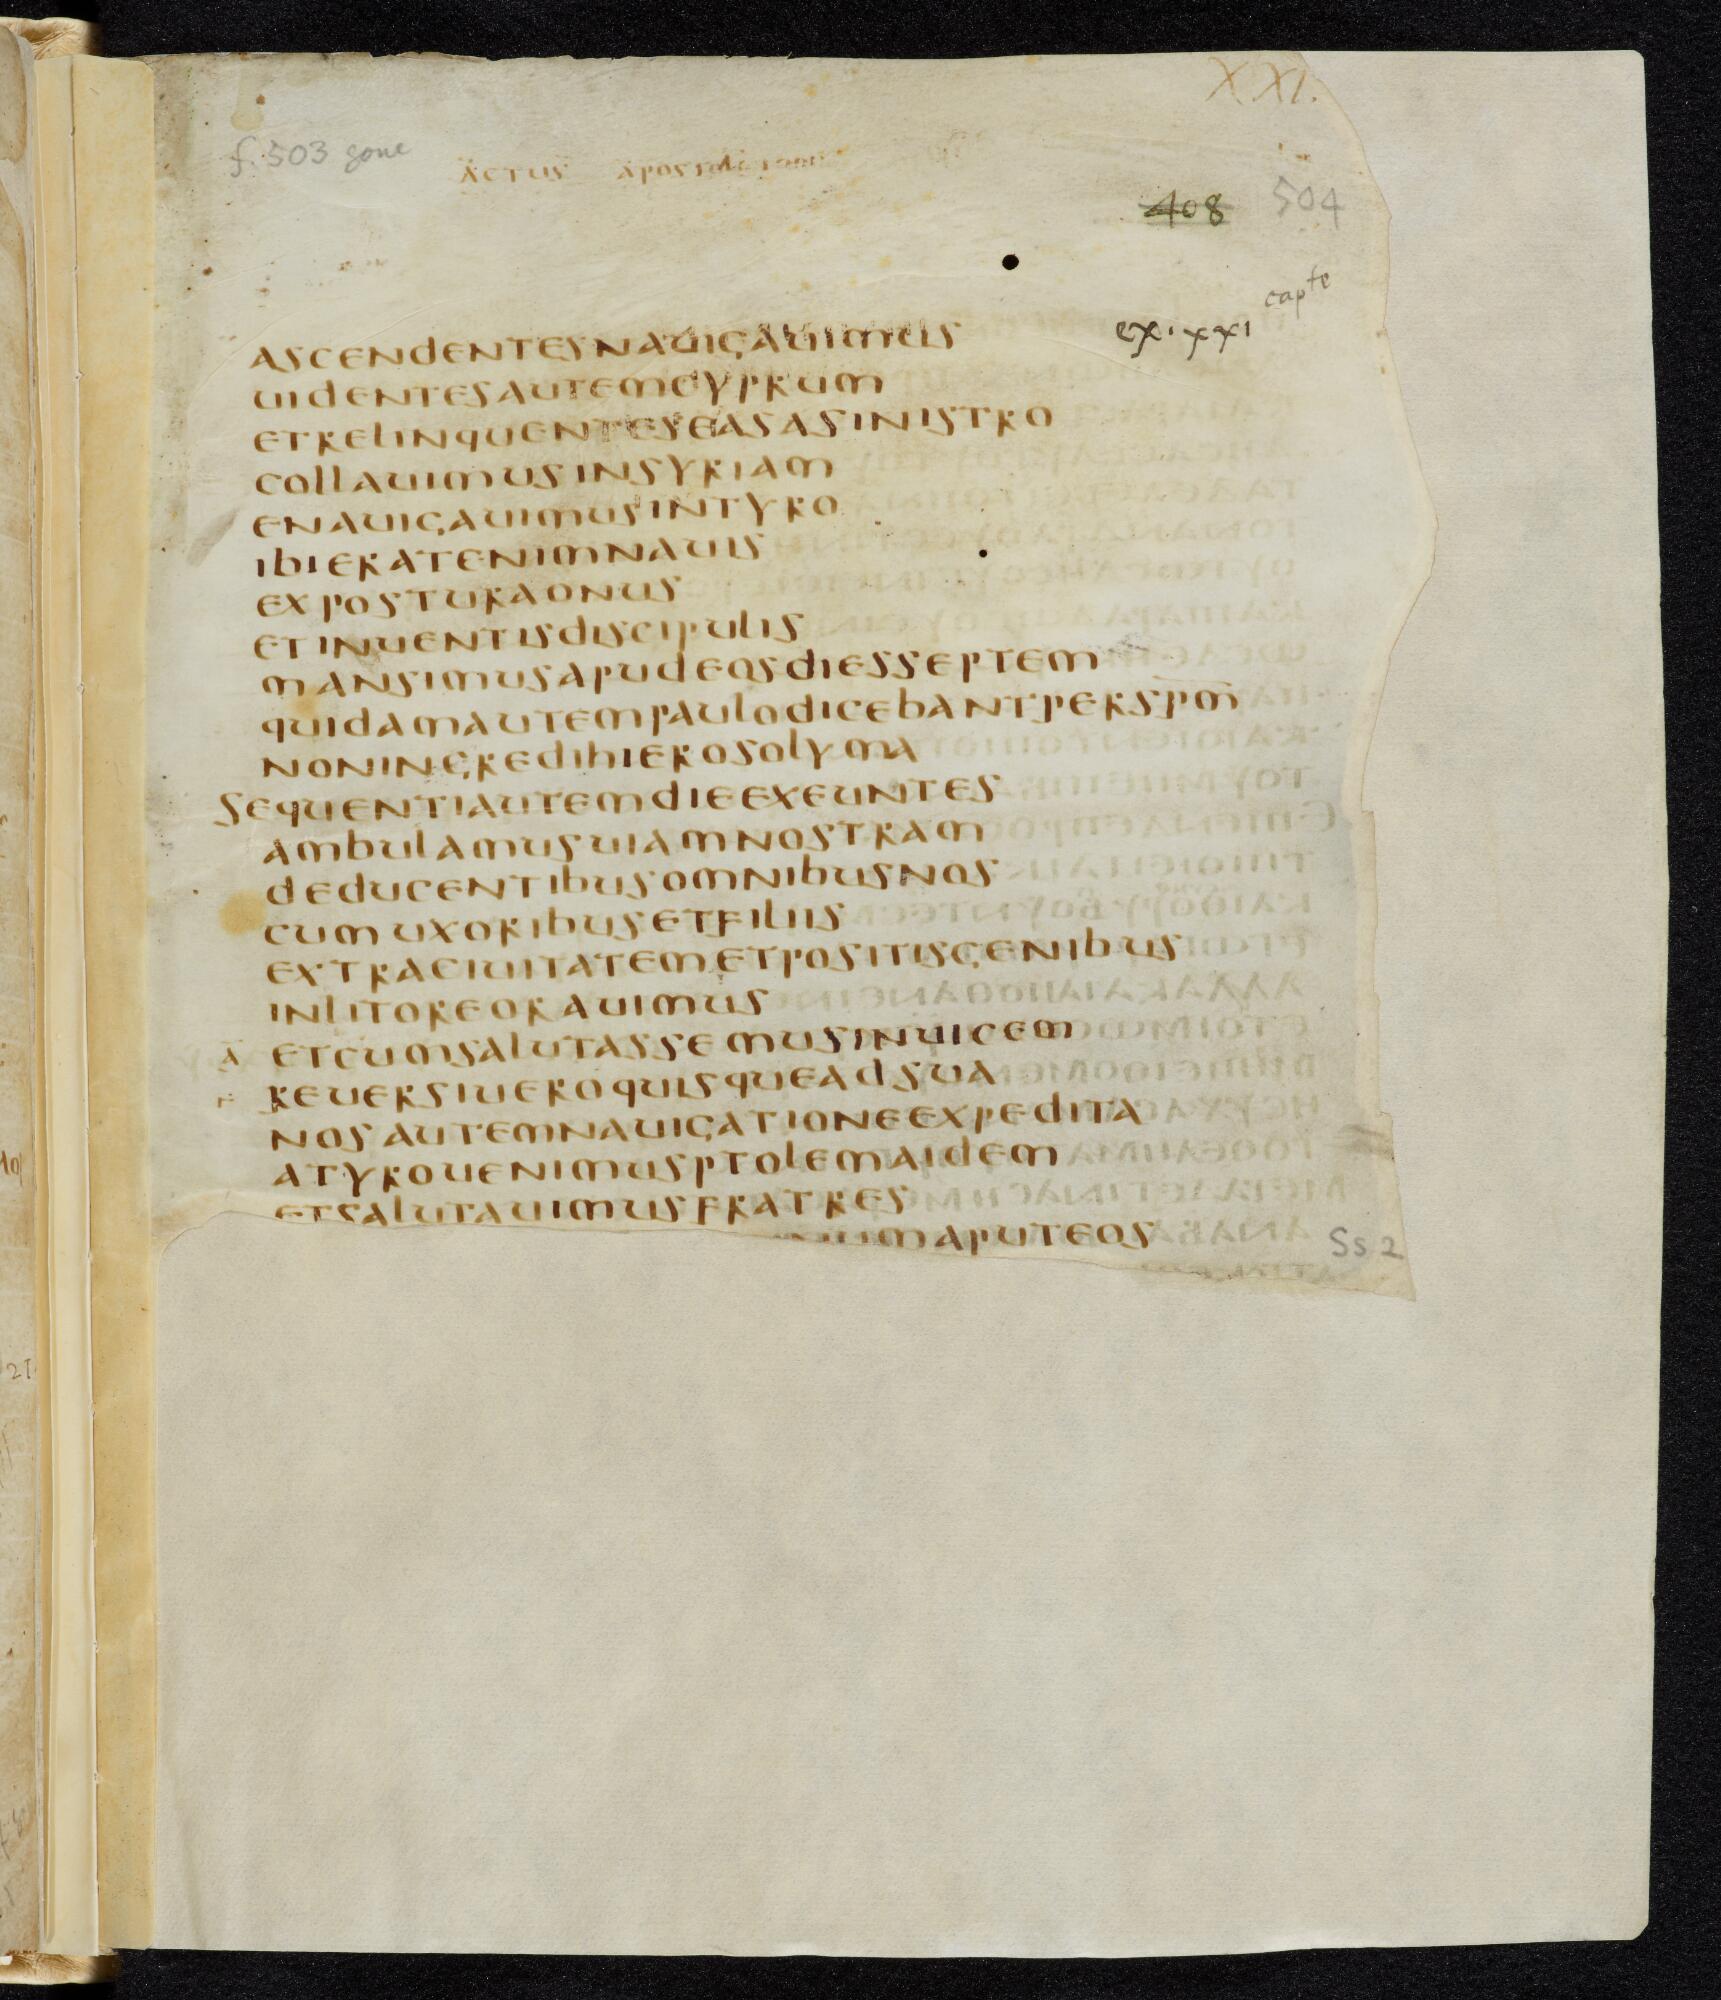 XXI.
f. 503 gone
ACTUS APOSTOLORUM
408 504
capte
ex · xxi
ASCENDENTESNAUIGAUIMUS
UIDENTESAUTEMCYPRUM
ETRELINQUENTESEASASINISTRO
COLLAUIMUSINSYRIAM
ENAUIGAUIMUSINTYRO
IBIERATENIMNAUIS
EXPOSTURAONUS
ETINUENTISDISCIPULIS
MANSIMUSAPUDEOSDIESSEPTEM
QUIDAMAUTEMPAULODICEBANTPERSPM̅
NONINGREDIHIEROSOLYMA
SEQUENTIAUTEMDIEEXEUNTES
AMBULAMUSUIAMNOSTRAM
DEDUCENTIBUSOMNIBUSNOS
CUMUXORIBUSETFILIIS
EXTRACIUITATEMETPOSITISGENIBUS
INLITOREORAUIMUS
ETCUMSALUTASSEMUSINUICEM
REUERSIUEROQUISQUEADSUA
NOSAUTEMNAUIGATIONEEXPEDITA
ATYROUENIMUSPTOLEMAIDEM
ETSALUTAUIMUSFRATRES
UMAPUTEOS
Ss 2